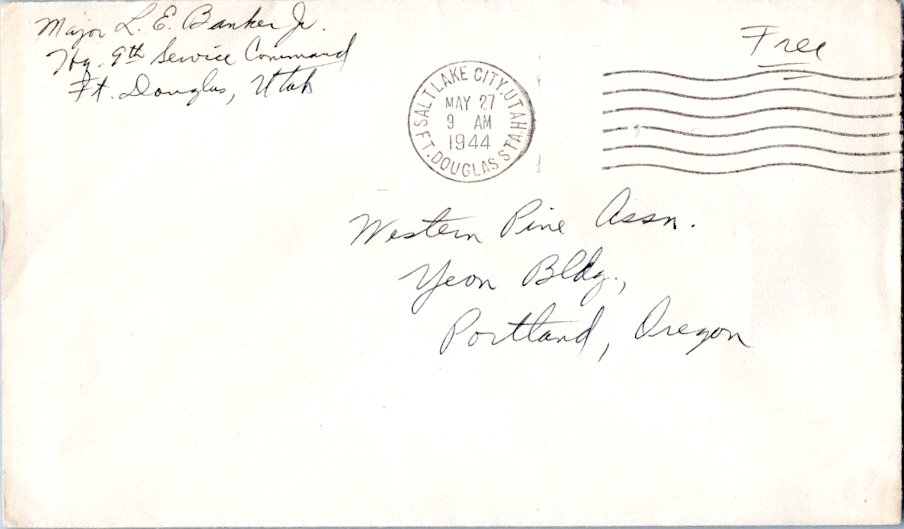 Major L. E. Banker Jr.
Hq. 9th Service Command
Ft. Douglas, Utah
Free
SALT LAKE CITY, UTAH
MAY 27
9 AM
1944
FT. DOUGLAS STA.
Western Pine Assn.
Yeon Bldg.,
Portland, Oregon